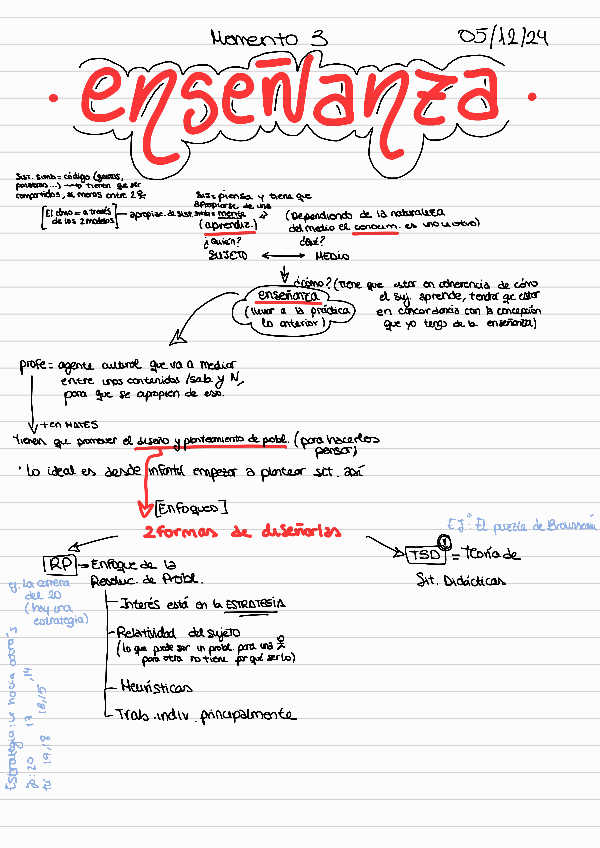 Momento 3 05/12/24
· enseñanza ·
Sist. simb = código (gestos,
palabras...) → tienen que ser
compartidos, al menos entre 2
[El cómo = a través
de los 2 modelos]
apropiac. de sist. simb =
suj = piensa y tiene que
apropiarse de una
mente
(aprendiz.)
(Dependiendo de la naturaleza
del medio el conocim. es uno u otro)
¿Quién? ¿Qué?
SUJETO ↔ MEDIO
enseñanza
(llevar a la práctica
lo anterior)
¿cómo? (tiene que estar en coherencia de cómo
el suj. aprende, tendrá que estar
en concordancia con la concepción
que yo tengo de la enseñanza)
profe = agente cultural que va a mediar
entre unos contenidos /sab y N,
para que se apropien de eso.
+ en MATES
Tienen que promover el diseño y planteamiento de probl. (para hacerlos
pensar)
· lo ideal es desde infantil empezar a plantear sit. así
[Enfoques]
2 formas de diseñarlas
Ej: "El puzzle de Brousseau
RP → Enfoque de la
Resoluc. de Probl.
TSD = Teoría de
Sit. Didácticas
1
ej: La carrera
del 20
(hay una
estrategia)
- Interés está en la ESTRATEGIA
- Relatividad del sujeto
(lo que puede ser un probl. para una
para otra no tiene por qué serlo)
- Heurísticas
- Trab. indiv. principalmente
Estrategia: ir hacia atrás
yo: 20 17 , 14
tú 19,18 16,15